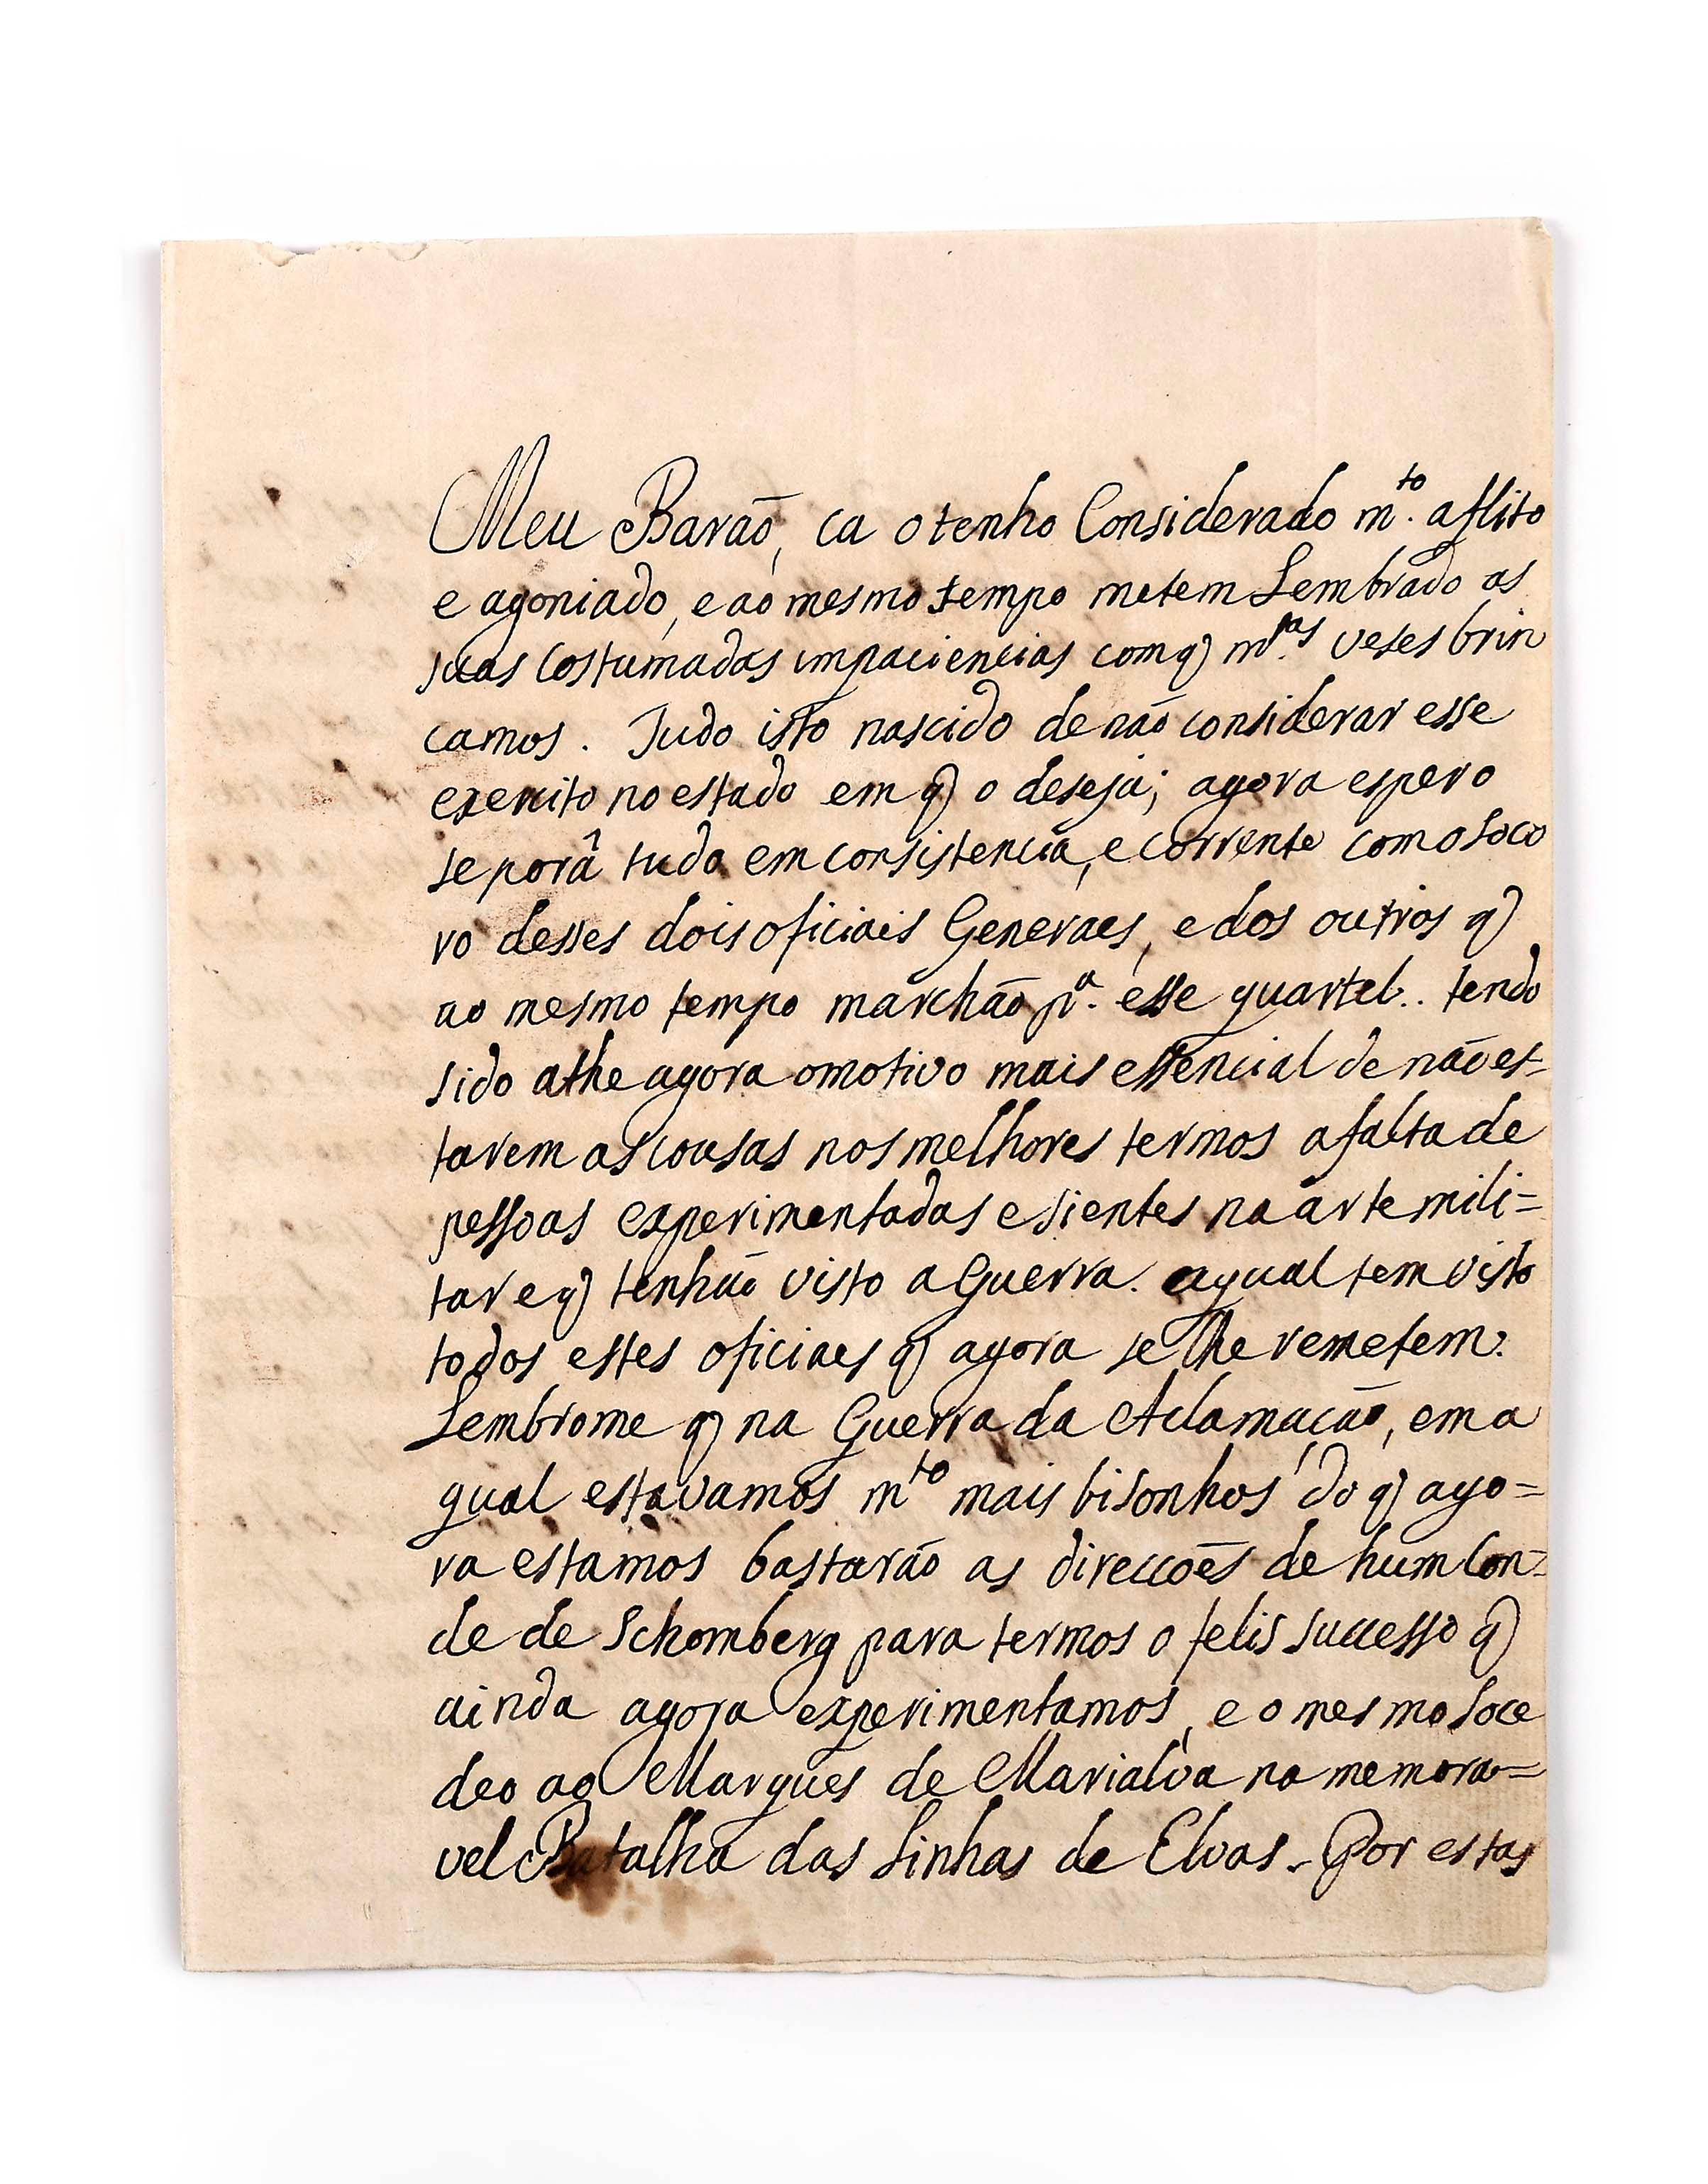 Meu Barão, ca o tenho Considerado m.to aflito
e agoniado, e ao mesmo tempo metem Lembrado as
suas Costumadas impaciencias com q̃ m.tas veses brin
camos. Tudo isto nascido de não considerar esse
exercito no estado em q̃ o deseja; agora espero
se porâ tudo em consistencia, e corrente com o soco
ro desses dois oficiais Generaes, e dos outros q̃
ao mesmo tempo marchão p.a esse quartel.. tendo
sido athe agora o motivo mais essencial de não es-
tarem as cousas nos melhores termos a falta de
pessoas experimentadas e sientes na arte mili=
tar e q̃ tenhão visto a Guerra. a qual tem visto
todos estes oficiaes q̃ agora se lhe remetem.
Lembrome q̃ na Guerra da Aclamacão, em a
qual estavamos m.to mais bisonhos do q̃ ago=
ra estamos bastarão as direccões de hum Con=
de de Schomberg para termos o felis sucesso q̃
ainda agora experimentamos, e o mesmo soce
deo ao Marques de Marialva na memora=
vel Batalha das Linhas de Elvas. Por estas